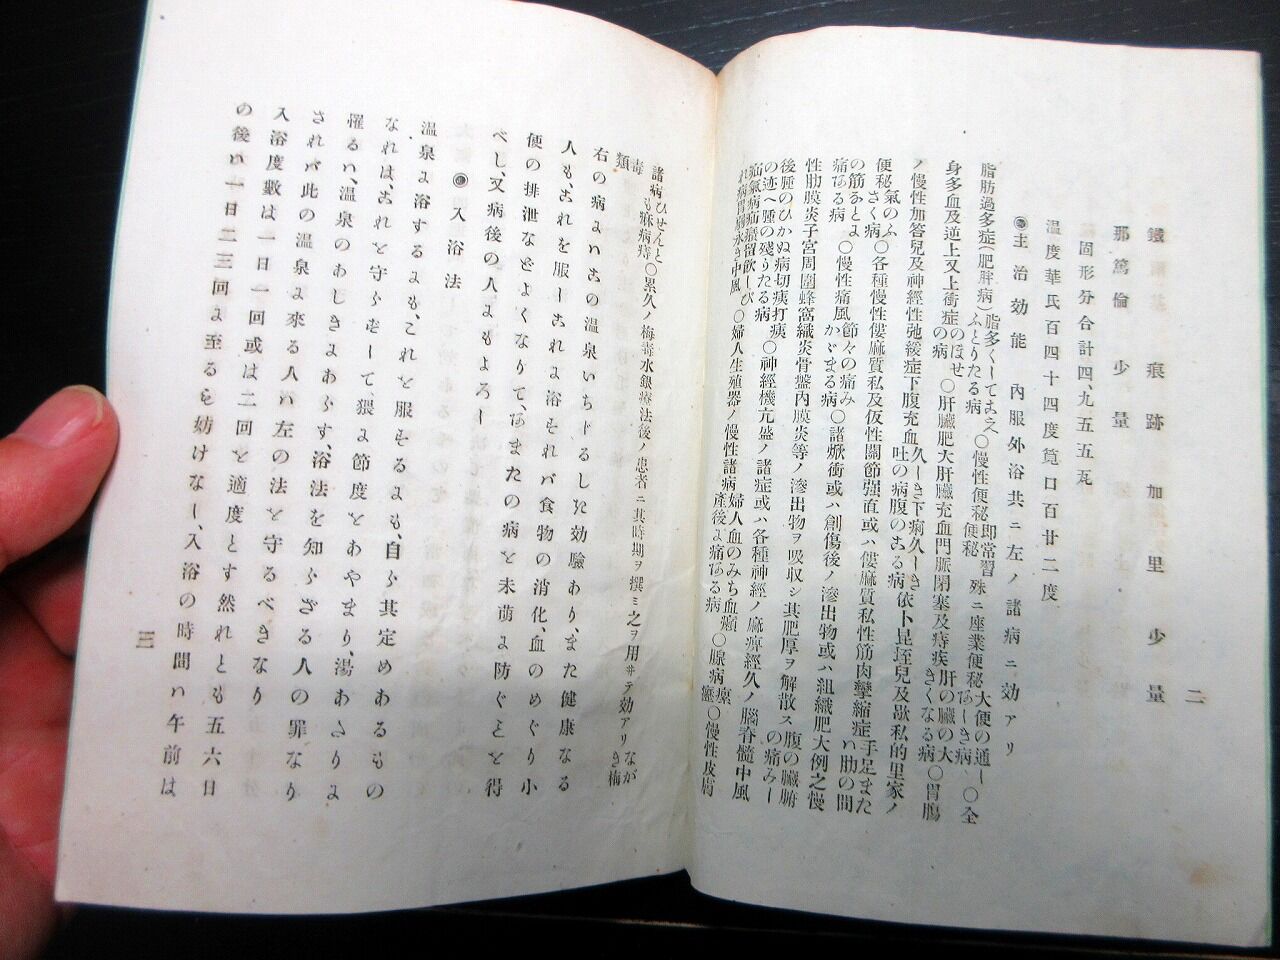 二
鐵 痕跡 加里 少量
那篤倫 少量
固形分合計四、九五五瓦
温度華氏百四十四度筧口百廿二度
◉主治効能 内服外浴共ニ左ノ諸病ニ効アリ
脂肪過多症(肥胖病)脂多くしてまえふとりたる病 〇慢性便秘即常習便秘 殊ニ座業便秘大便の通じあしき病 〇全
身多血及逆上又上衝症のぼせの病 〇肝臓肥大肝臓充血門脈閉塞及痔疾肝の臓の大きくなる病〇胃腸
ノ慢性加答兒及神經性弛緩症下腹充血久しき下痢久しき吐の病腹のこる病依卜昆垤兒及歇私的里家ノ
便秘氣のふさく病〇各種慢性僂麻質私及仮性關節强直或ハ僂麻質私性筋肉攣縮症手足また
の筋なとに痛ある病 〇慢性痛風節々の痛みかゞまる病〇諸焮衝或ハ創傷後ノ滲出物或ハ組織肥大例之慢
性肋膜炎子宮周圍蜂窩織炎骨盤内膜炎等ノ滲出物ヲ吸収シ其肥厚ヲ解散ス腹の臓腑
後腫のひかぬ病切痍打痍の迹へ腫の殘りたる病 〇神經機亢盛ノ諸症或ハ各種神經ノ麻痺經久ノ腦脊髓中風
疝氣病疝癪留飲しびれ病胃腸永き中風 〇婦人生殖器ノ慢性諸病婦人血のみち血癪産後に痛ある病 〇腺病瘰癧〇慢性皮膚
諸病ひせんとも痳病痔〇累久ノ梅毒水銀療法後ノ患者ニ其時期ヲ撰ミ之ヲ用ヰテ効アリながき梅
毒類
右の病にハこの温泉いちじるしき効驗あり、また健康なる
人も、これを服しこれに浴すれバ食物の消化、血のめぐり小
便の排泄などよくなりて、あまたの病を未萠に防ぐことを得
べし、又病後の人にもよろし
◉入浴法
温泉に浴するにも、これを服するにも、自ら其定めあるもの
なれは、これを守らずして、猥に節度をあやまり、湯あたりに
罹るハ、温泉のあしきにあらす、浴法を知らざる人の罪なり
されバ此の温泉に來る人ハ左の法を守るべきなり
入浴度數は一日一回或は二回を適度とす然れとも五六日
の後ハ一日二三回に至るも妨けなし、入浴の時間ハ午前は
三